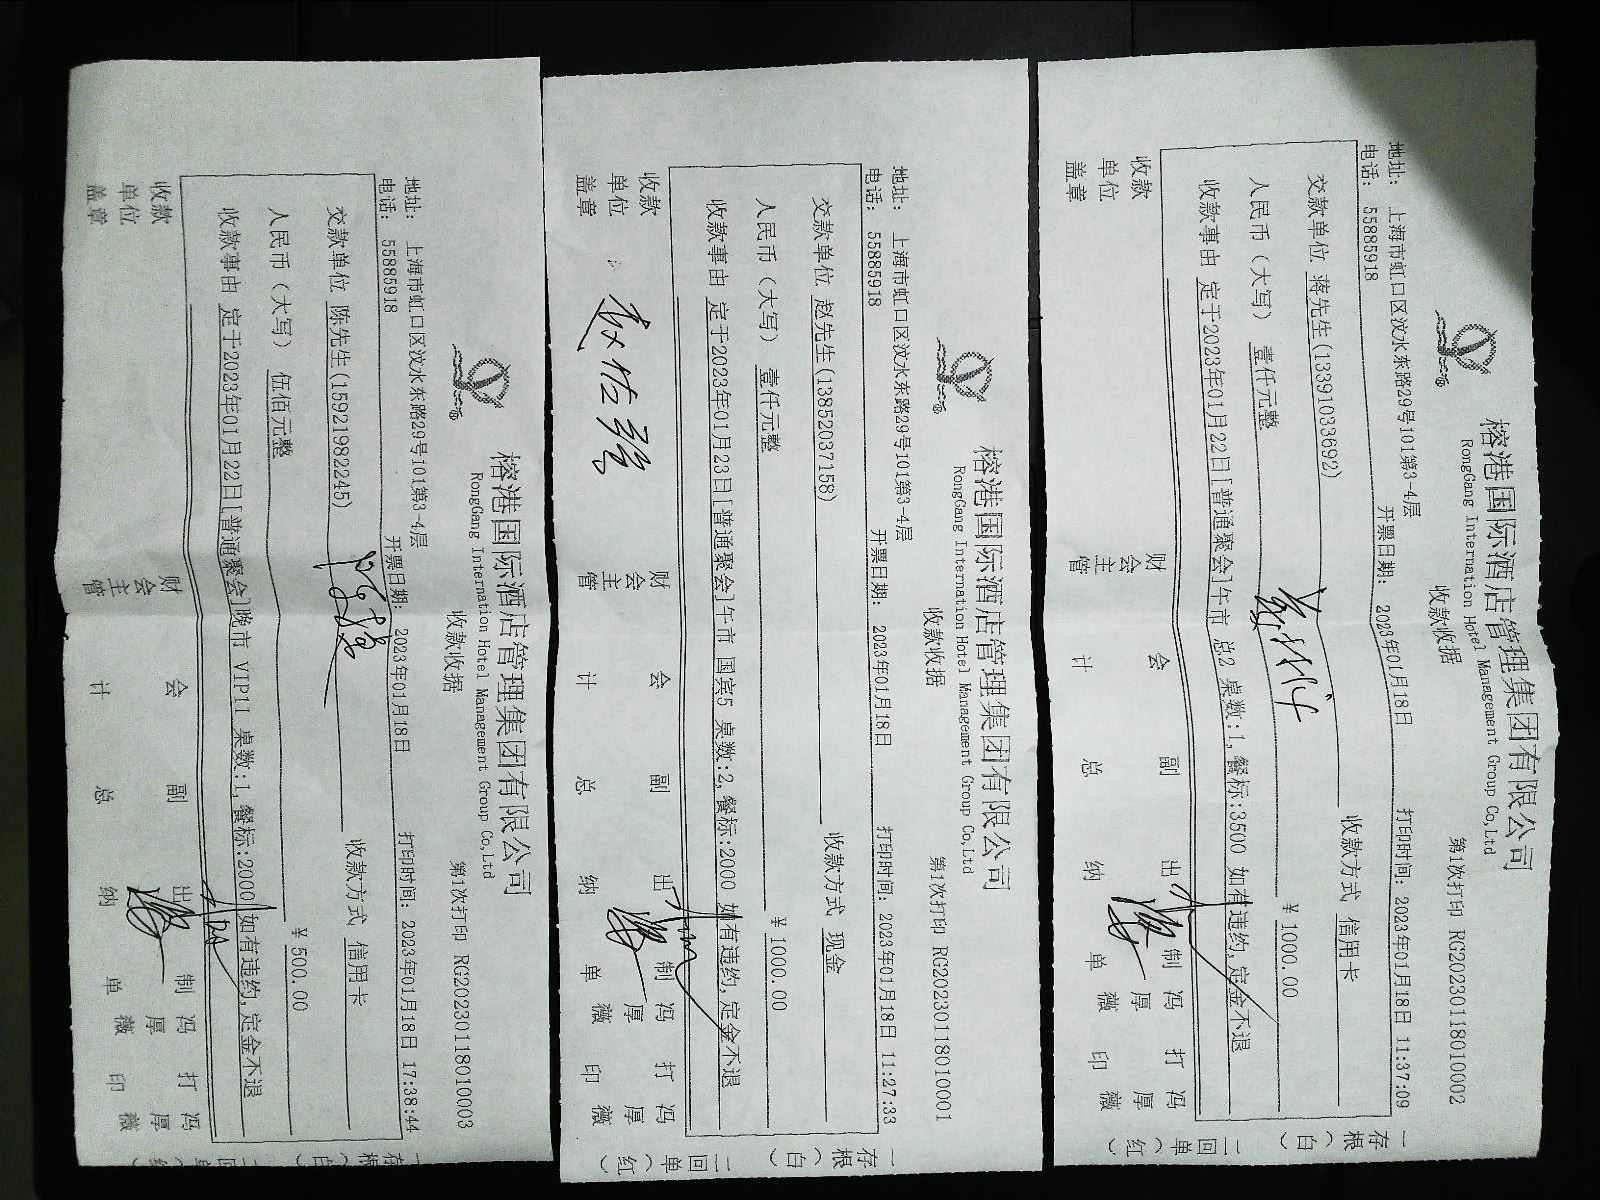 榕港国际酒店管理集团有限公司
RongGang Internation Hotel Management Group Co,Ltd
收款收据
第1次打印 RG20230118010002
地址: 上海市虹口区汶水东路29号101第3-4层
电话: 55885918
开票日期: 2023年01月18日
打印时间: 2023年01月18日 11:37:09
交款单位 蒋先生(13391033692)
收款方式 信用卡
人民币(大写) 壹仟元整
¥ 1000.00
收款事由 定于2023年01月22日[普通聚会]午市 总2 桌数:1,餐标:3500 如有违约,定金不退
收款单位盖章
财会主管
会计
副总
出纳
制单 冯厚薇
打印 冯厚薇
一存根(白)
二回单(红)
榕港国际酒店管理集团有限公司
RongGang Internation Hotel Management Group Co,Ltd
收款收据
第1次打印 RG20230118010001
地址: 上海市虹口区汶水东路29号101第3-4层
电话: 55885918
开票日期: 2023年01月18日
打印时间: 2023年01月18日 11:27:33
交款单位 赵先生(13852037158)
收款方式 现金
人民币(大写) 壹仟元整
¥ 1000.00
收款事由 定于2023年01月23日[普通聚会]午市 国宾5 桌数:2,餐标:2000 如有违约,定金不退
收款单位盖章
财会主管
会计
副总
出纳
制单 冯厚薇
打印 冯厚薇
一存根(白)
二回单(红)
榕港国际酒店管理集团有限公司
RongGang Internation Hotel Management Group Co,Ltd
收款收据
第1次打印 RG20230118010003
地址: 上海市虹口区汶水东路29号101第3-4层
电话: 55885918
开票日期: 2023年01月18日
打印时间: 2023年01月18日 17:38:44
交款单位 陈先生(15921982245)
收款方式 信用卡
人民币(大写) 伍佰元整
¥ 500.00
收款事由 定于2023年01月22日[普通聚会]晚市 VIP11 桌数:1,餐标:2000 如有违约,定金不退
收款单位盖章
财会主管
会计
副总
出纳
制单 冯厚薇
打印 冯厚薇
一存根(白)
二回单(红)